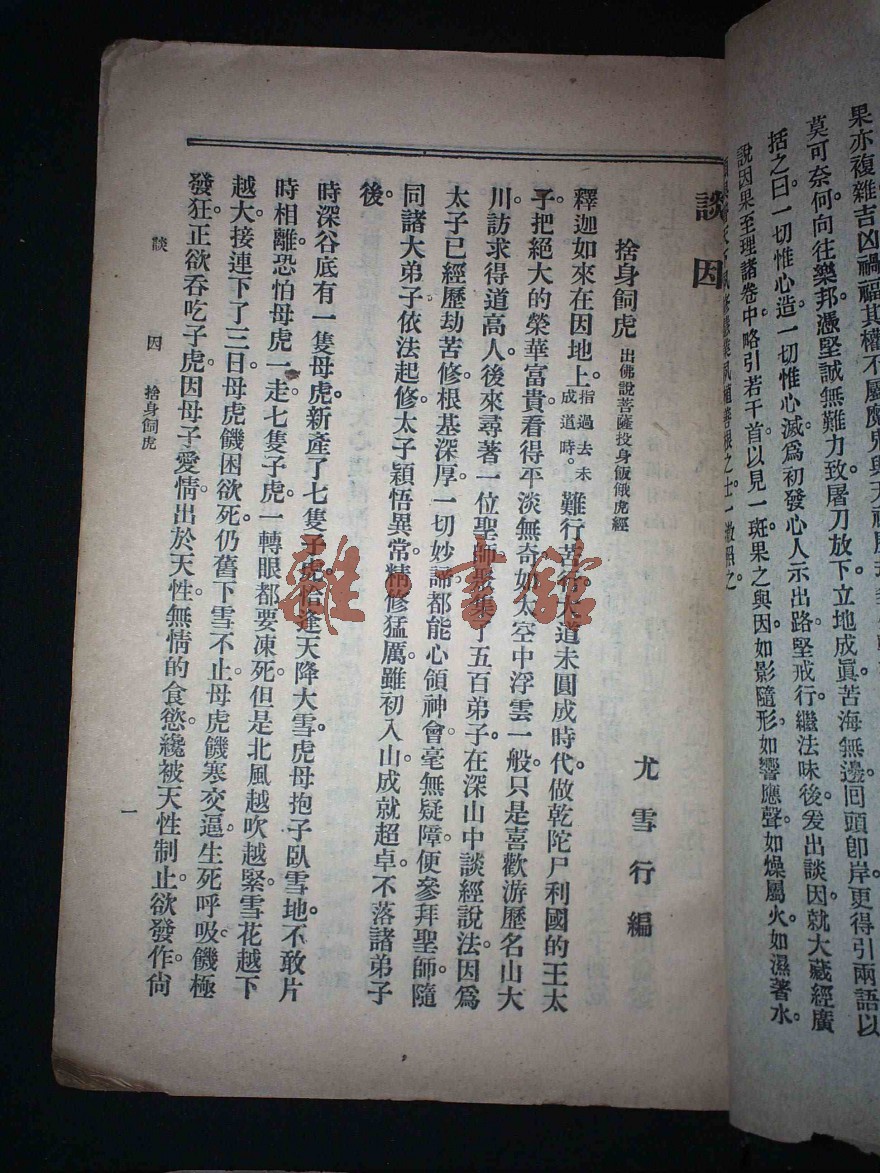 果亦複雜吉凶禍福其權不屬魔鬼與天神
莫可奈何向往樂邦憑堅誠無難力致屠刀放下立地成眞苦海無邊回頭卽岸更得引兩語以
括之曰一切惟心造一切惟心滅爲初發心人示出路堅戒行繼法味後发出談因就大藏經廣
說因果至理諸卷中略引若干首以見一斑果之與因如影隨形如響應聲如燥屬火如濕著水。
談因
尤雪行編
捨身飼虎 出佛說菩薩投身飯餓虎經
釋迦如來在因地上。指過去未成道時。難行苦行大道未圓成時代。做乾陀尸利國的王太
子。把絕大的榮華富貴看得平淡無奇。如太空中浮雲一般。只是喜歡游歷名山大
川。訪求得道高人。後來尋著一位聖師聚集了五百弟子。在深山中談經說法。因爲
太子已經歷劫苦修。根基深厚。一切妙諦都能心領神會。毫無疑障。便參拜聖師。隨
同諸大弟子依法起修。太子穎悟異常。精修猛厲。雖初入山。成就超卓。不落諸弟子
後。
時深谷底有一隻母虎。新產了七隻子虎。恰逢天降大雪。虎母抱子臥雪地。不敢片
時相離。恐怕母虎一走。七隻子虎。一轉眼都要凍死。但是北風越吹越緊。雪花越下
越大。接連下了三日。母虎饑困欲死。仍舊下雪不止。母虎饑寒交逼。生死呼吸。饑極
發狂。正欲吞吃子虎。因母子愛情出於天性。無情的食慾纔被天性制止。欲發作。尙
談 因 捨身飼虎 一
雜·書館